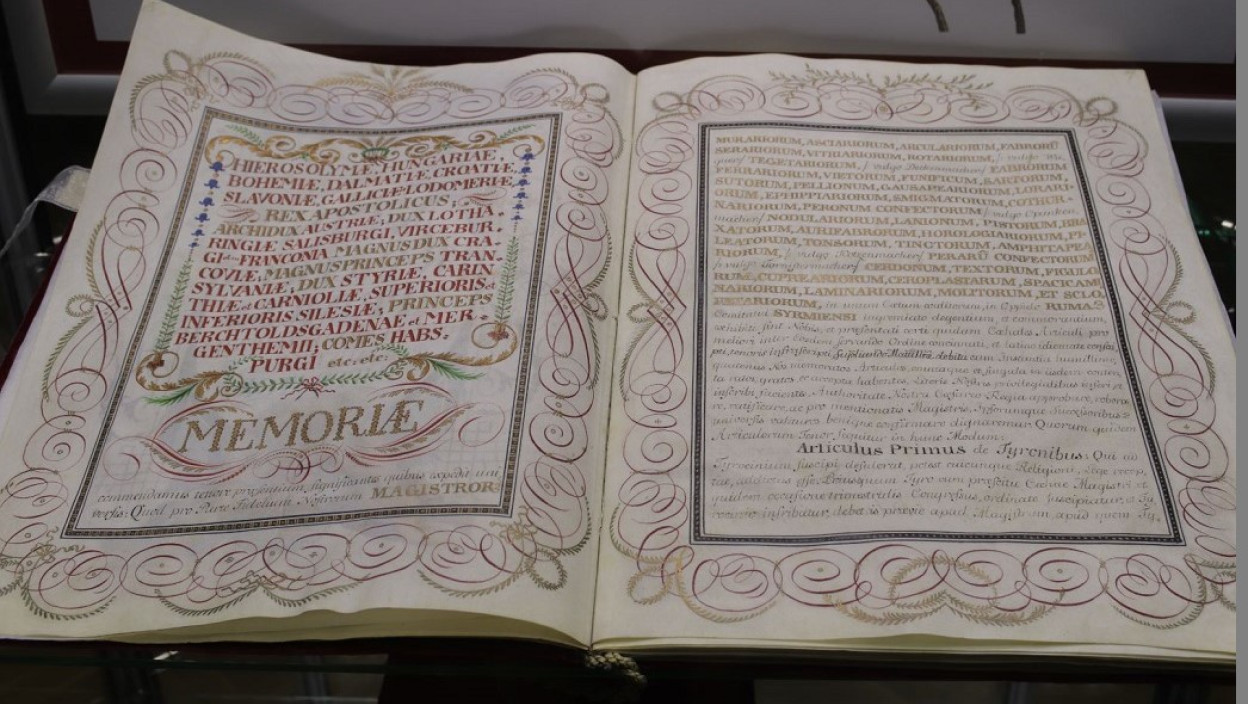 HIEROSOLYMÆ, HUNGARIÆ,
BOHEMIÆ, DALMATIÆ, CROATIÆ,
SLAVONIÆ, GALLICIÆ LODOMERIÆ
REX APOSTOLICUS;
ARCHIDUX AUSTRIÆ; DUX LOTHA-
RINGIÆ SALISBURGI, VIRCEBUR-
GI et in FRANCONIA MAGNUS DUX CRA-
COVIÆ, MAGNUS PRINCEPS TRAN-
SYLVANIÆ, DUX STYRIÆ, CARIN
THIÆ et CARNIOLLÆ, SUPERIORIS et
INFERIORIS SILESIÆ, PRINCEPS
BERCHTOLDSGADENAE et MER-
GENTHEMII; COMES HABS-
PURGI etc etc:
MEMORIÆ
commendamus tenore præsentium significantes quibus expedit uni
versis: Quod pro Parte Fidelium Nostrorum MAGISTROR:
MURARIORUM, ASCIARIORUM, ARCULARIORUM, FABRORŪ
SERARIORUM, VITRIARIORUM, ROTARIORUM, vulgo
TEGETARIORUM, vulgo FABRORUM
FERRARIORUM, VIETORUM, FUNIFICUM, SARTORUM,
SUTORUM, PELLIONUM, GAUSAPEARIORUM, LORARI-
ORUM, EPHIPPIARIORUM, SMIGMATORUM, COTHUR-
NARIORUM, PERONUM CONFECTORUM vulgo
NODULARIORUM, LANIONUM, PISTORUM,
XATORUM, AURIFABRORUM, HOROLOGIARIORUM, PI-
LEATORUM, TONSORUM, TINCTORUM, AMPHITAPEA
RIORUM, vulgo PERARŪ CONFECTORUM
vulgo CERDONUM, TEXTORUM, FIGULO
RUM, CUPREARIORUM, CEROPLASTARUM, SPACICAMI
NARIORUM, LAMINARIORUM, MOLITORUM, ET
in unum Cætum coalitorum, in Oppido RUMA
Comitatui SYRMIENSI degentium et commorantium
exhibiti sunt Nobis, et præsentati certi quidam Cæhales Articuli, pro
inter Eosdem servando Ordine concinnati, et latino idiomate
tenoris infrascripti, Supplicando Majestati debita cum Instantia humillime,
quatenus Nos memoratos Articulos, omniaque et singula in iisdem conten
ta rata, grata, et accepta habentes, Literis Nostris privilegialibus inseri et
inscribi facientes, Authoritate Nostra Cæsareo Regia approbare, robora
re, ratificare, ac pro mentionatis Magistris, Ipsorumque Successoribus
universis valituros benigne confirmare dignaremur Quorum quidem
Articulorum Tenor sequitur in hunc Modum:
Articulus Primus de Tyronibus: Qui ad
Tyrocinium suscipi desiderat, potest cujuscunque Religionis, Lege recep
tæ, addictus esse. Ejusmodi Tyro cum præscitu Cæhæ Magistri, et
quidem occasione trimestralis Congressus, ordinate suscipiatur, et Ty
rocinio inscribatur, debet is prævie apud Magistrum, apud quem Ty